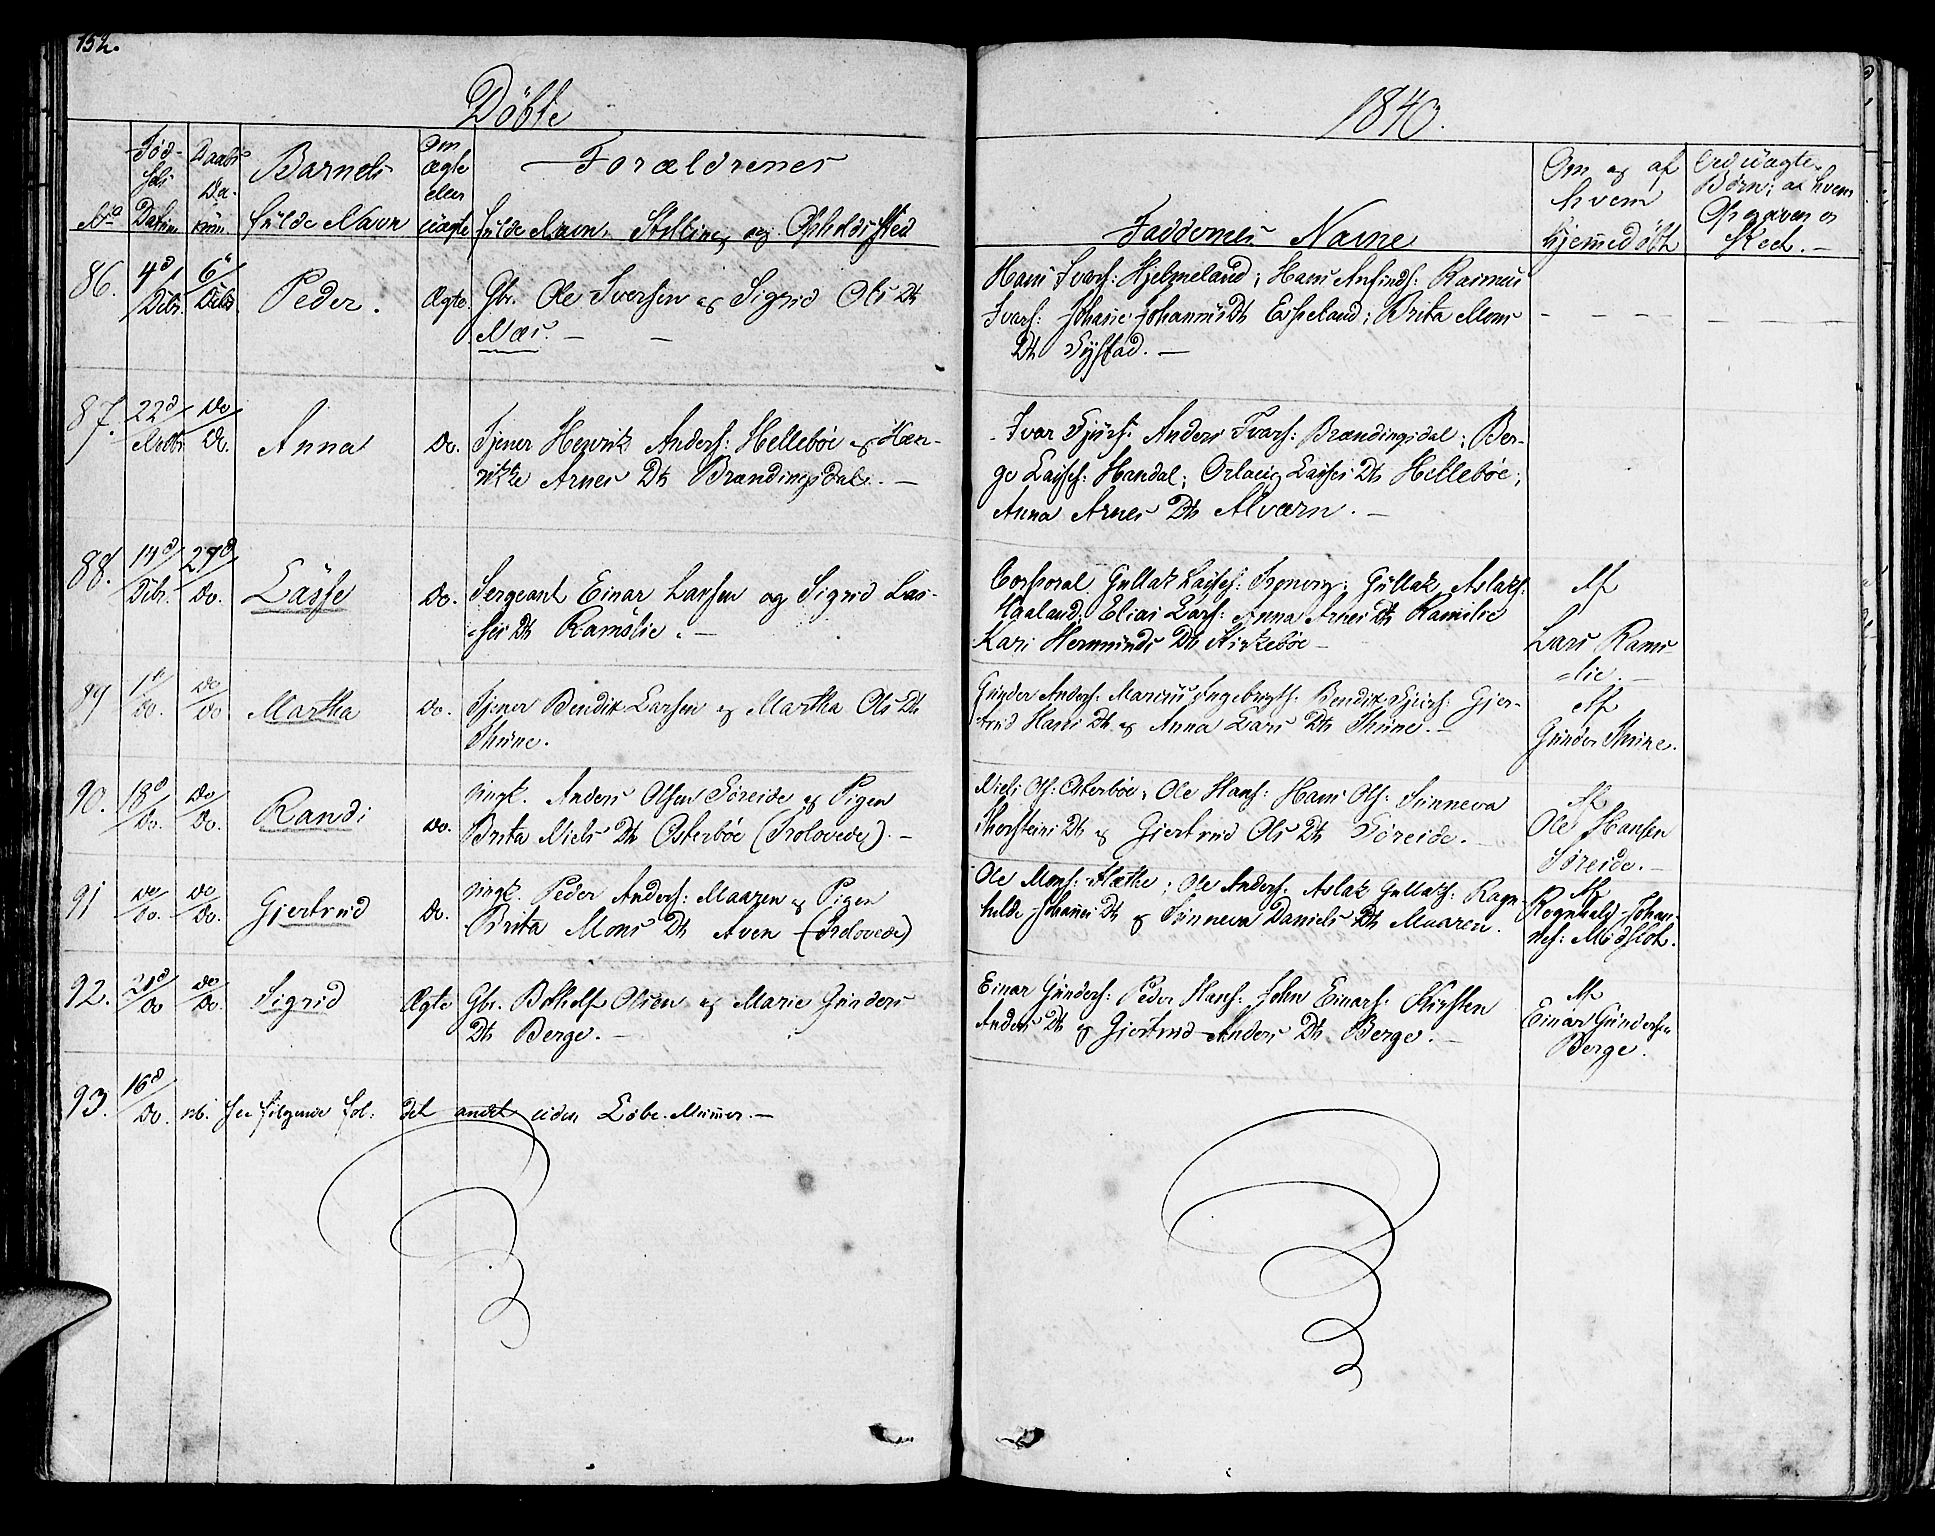 152.
Döbte
1840.
No
Födsels Datum
Daabs Datum
Barnets fulde Navn
Om ægte eller uægte
Forældrenes fulde Navn, Stilling og Opholds Sted
Faddernes Navne
Om og af hvem hjemmedöbt
Ved uægte Börn; af hvem Opgaven er Skeet. -
86. 4d/Decbr. 6te/Decbr. Peder. Ægte. Gbr. Ole Iversen og Sigrid Ols Dtr
Næs. - -
Hans Ivars: Hjelmeland; Hans Anfinds: Rasmus
Ivars: Johanne Johannis Dtr Espeland; Brita Mons
Dtr Systad. -
87. 22d/Novbr. Do/Do. Anna Do. Tjener Henrik Anders: Hellebøe og Hen-
rikke Arnes Dtr Brændingsdal. -
Ivar Sjurs: Anders Ivars: Brændingsdal; Ber-
ge Lasses: Handal; Orlaug Lasses Dtr Hellebøe;
Anna Arnes Dtr Alværn. -
88. 14d/Decbr. 27d/Do. Lasse Do. Sergeant Einar Larsen og Sigrid Las-
ses Dtr Ramslie. -
Corporal Gullak Lasses: Gullak Aslaks:
Haaland; Elias Lars: Anna Arnes Dtr Ramslie
Kari Hermunds Dtr Kirkebøe -
Af
Lars Rams-
lie. -
89 1te/Do. Do/Do Martha Do. Tjener Bendik Larsen og Martha Ols Dtr
Thune.
Gunder Anders: Marcus Ingebrigts: Bendik Sjurs: Gjer-
trud Hans Dtr og Anna Lars Dtr Thune. -
Af
Gunder Thune.
90. 18d/Do. Do/Do. Randi Do. Ungk. Anders Olsen Søreide og Pigen
Brita Niels Dtr Osterbøe (Trolovede). -
Niels Ols: Osterbøe; Ole Hans: Hans Ols: Sunneva
Thorsteins Dtr og Gjertrud Ols Dtr Søreide. -
Af
Ole Hansen
Søreide. -
91 Do/Do. Do/Do. Gjertrud Do. Ungk. Peder Anders: Maaren og Pigen
Brita Mons Dtr Aven (Trolovede)
Ole Mons: Slæthe; Ole Anders: Aslak Gullaks: Ragn-
hilde Johannes Dtr og Sunneva Daniels Dtr Maaren.
Af
Rognald Johan-
nes: Midtlot.
92. 21d/Do Do/Do. Sigrid Ægte Gbr. Botholf Olsen og Marie Gunders
Dtr Berge. -
Einar Gunders: Peder Hans: John Einars: Kirsten
Anders Dtr og Gjertrud Anders Dtr Berge. -
Af
Einar Gundersen
Berge.
93. 16d/Do. nb. see fölgende fol: det andet uden Löbe-Nummer. -